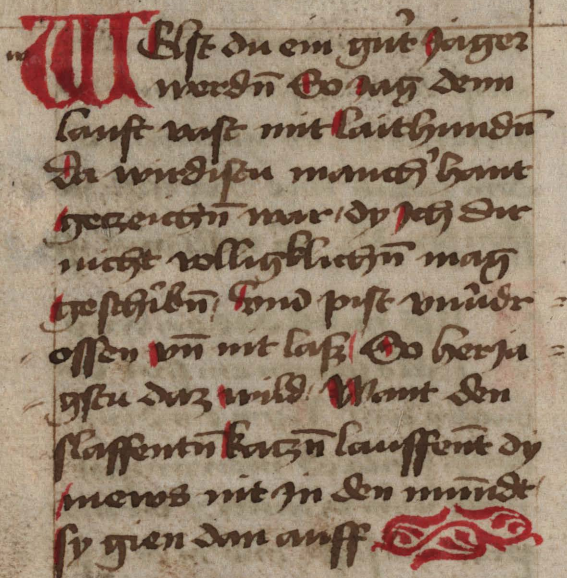 WElst du ein gut' Jager
werdn̄ So jag denn
lauft vast mit laithundn̄
Da wirdistu manch' hant
getzeichn̄ war / dy Jch dir
nicht volligklichn̄ mag
geschribn̄ / Vnd pist vnu'dr=
ossen vn̄ nit lasz / So herja=
gstu daz wild / Want den
slaffentn̄ katzn̄ lauffent dy
mews nit jn den mundt /
sy gien dan auff